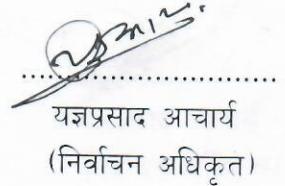 ..............................
यज्ञप्रसाद आचार्य
(निर्वाचन अधिकृत)